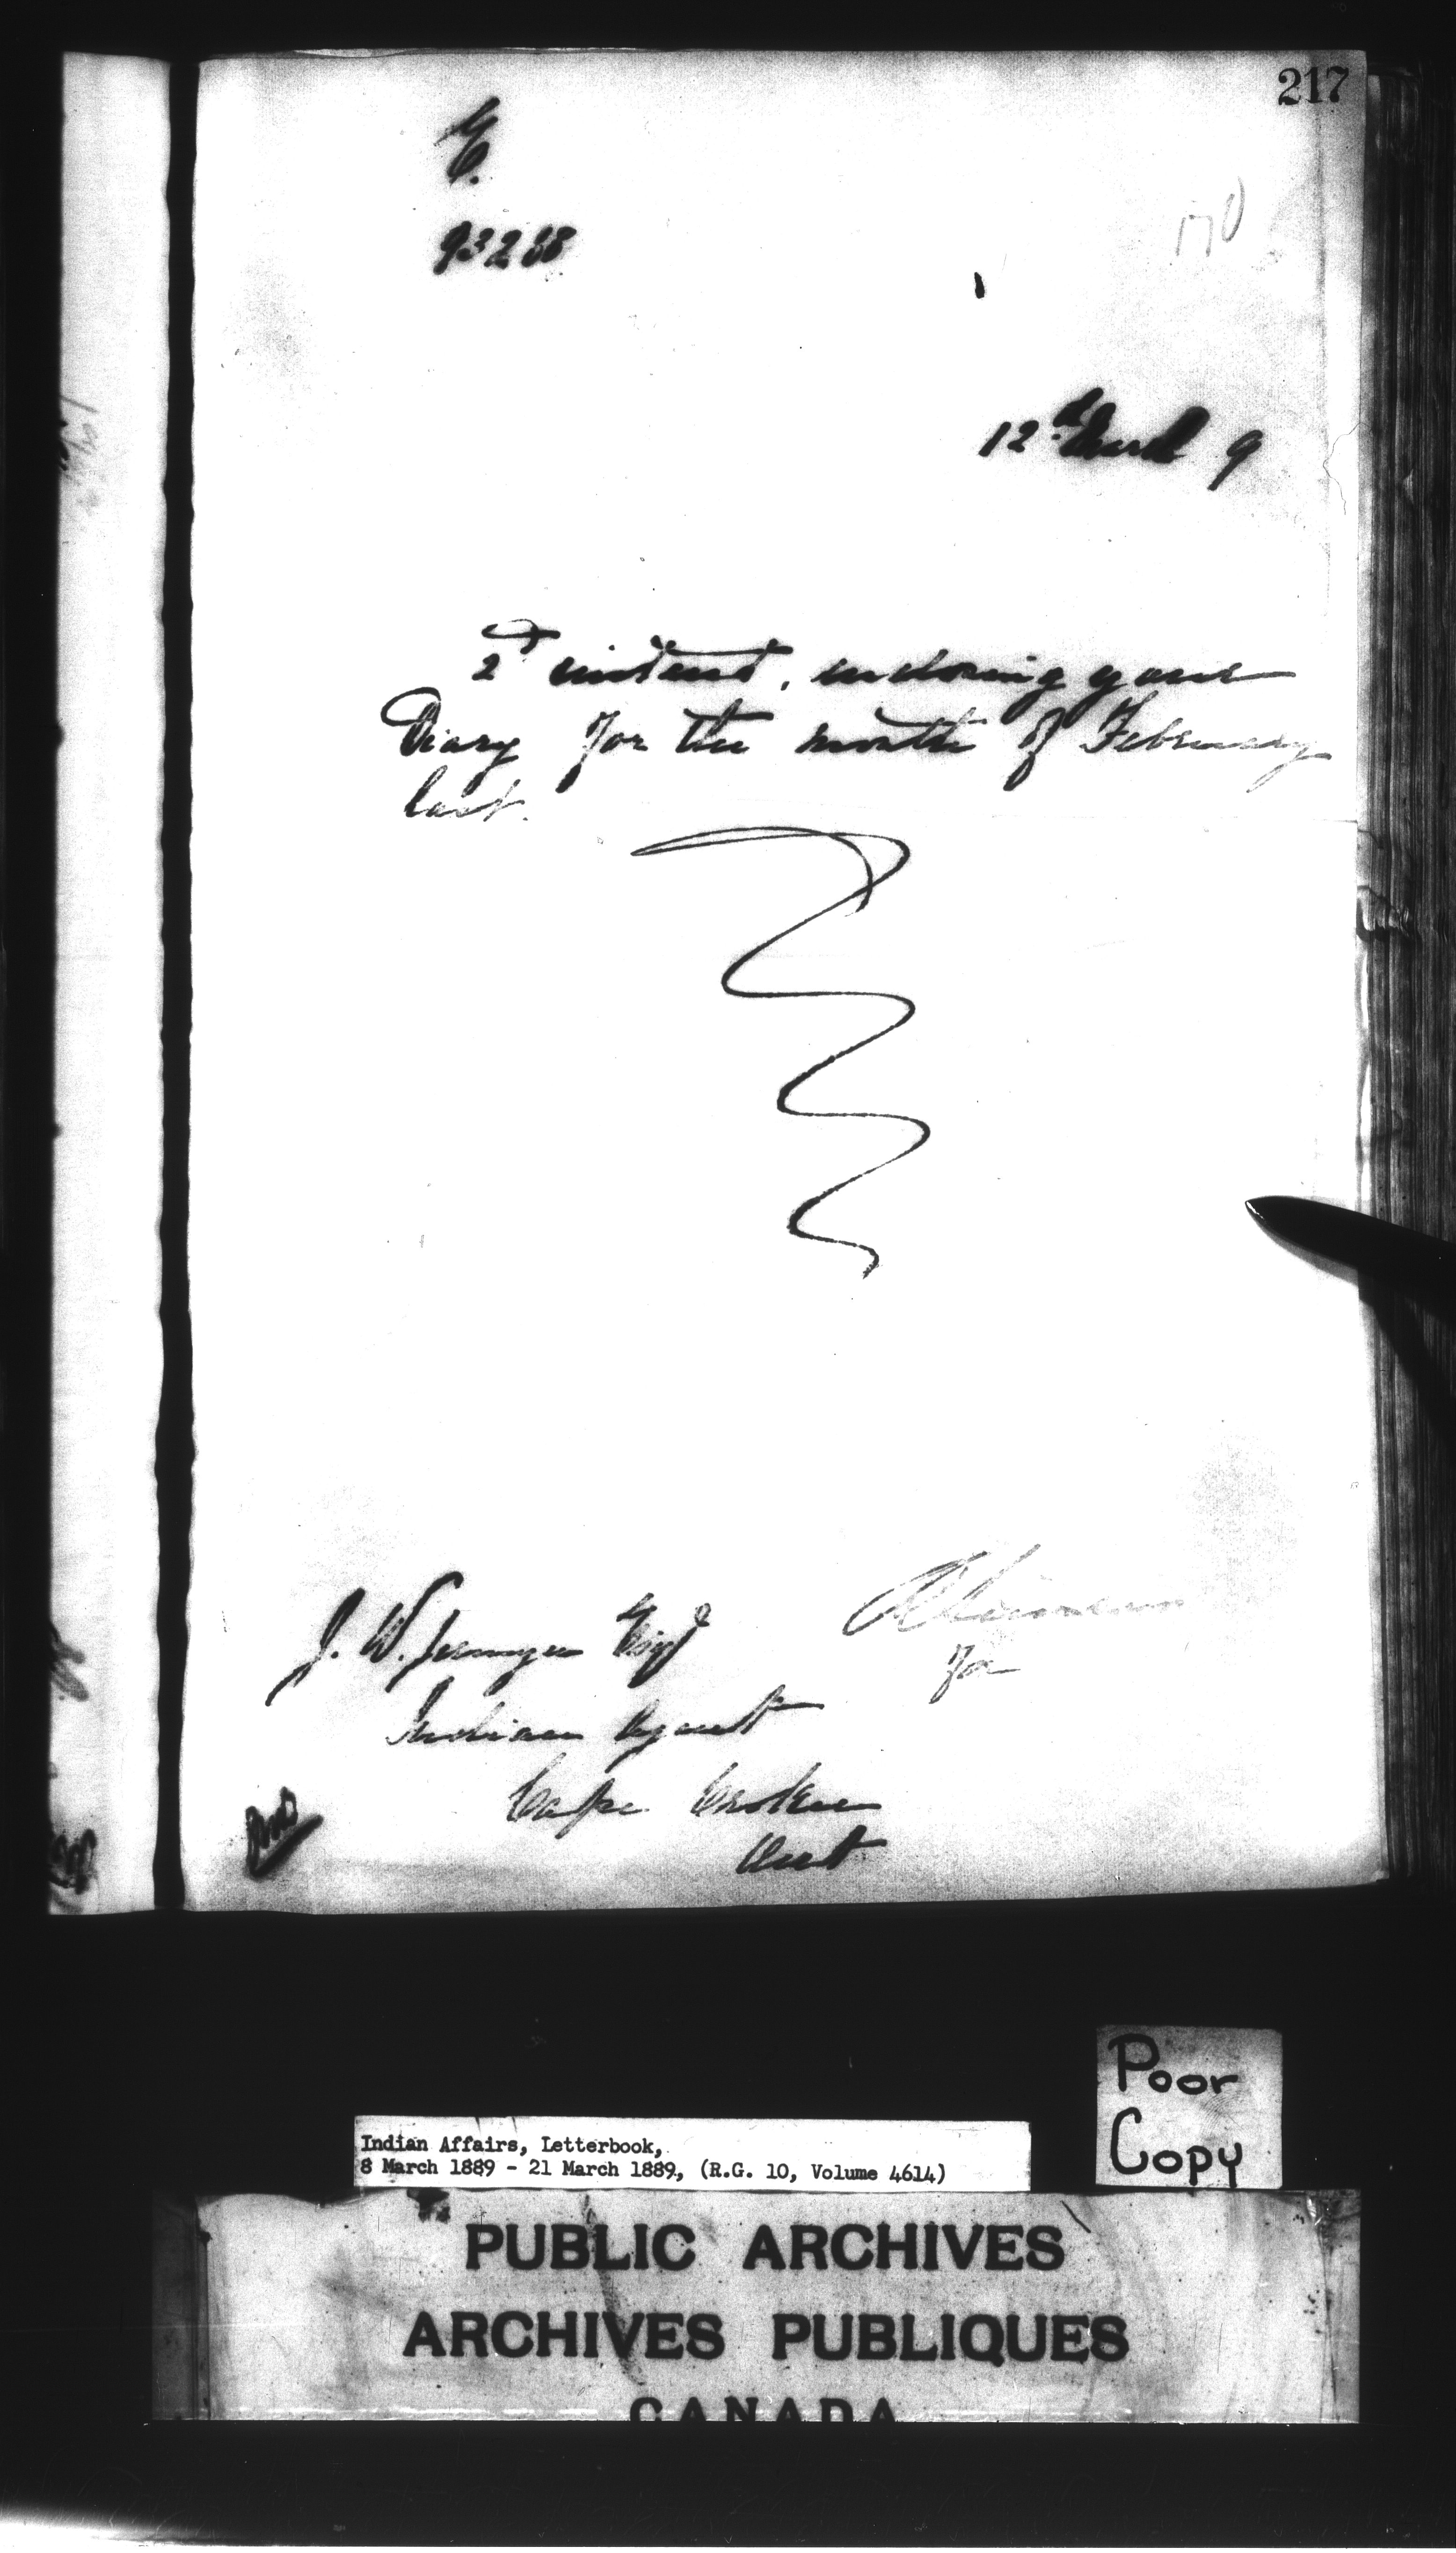 217
E.
93288
170
12th March 9
2d instant, inclosing your
Diary for the month of February
last.
J. W. Jermyn Esqr
for
Indian Agent
Cape Croker
Ont
Poor
Copy
Indian Affairs, Letterbook,
8 March 1889 - 21 March 1889, (R.G. 10, Volume 4614)
PUBLIC ARCHIVES
ARCHIVES PUBLIQUES
CANADA